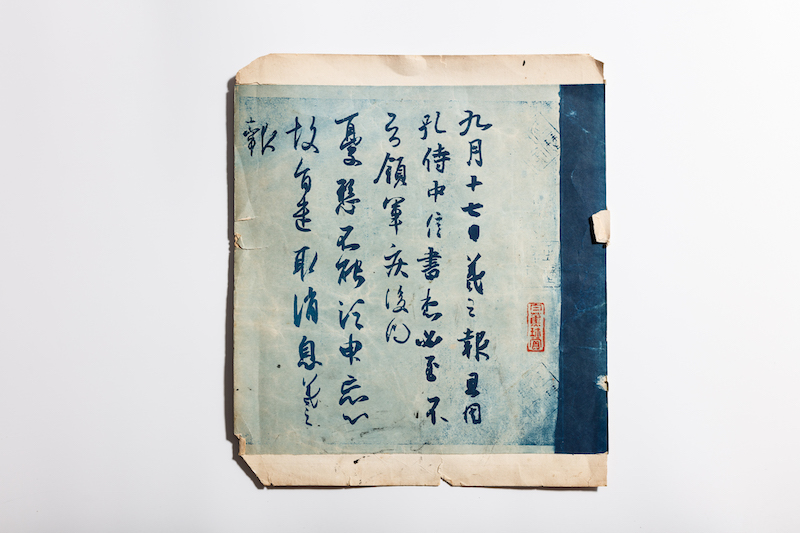 九月十七日羲之報且因
孔侍中信書想必至不
知領軍疾後問
憂懸不能須臾忘心
故旨遣取消息羲之
報